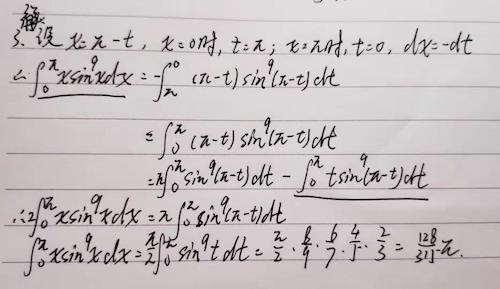 解
3. 设 x=π-t, x=0时, t=π; x=π时, t=0, dx=-dt
∴ ∫₀^π x sin⁹x dx = -∫_π^0 (π-t) sin⁹(π-t) dt
= ∫₀^π (π-t) sin⁹(π-t) dt
= π∫₀^π sin⁹(π-t) dt - ∫₀^π t sin⁹(π-t) dt
∴ 2∫₀^π x sin⁹x dx = π∫₀^π sin⁹(π-t) dt
∫₀^π x sin⁹x dx = π/2 ∫₀^π sin⁹t dt = π/2 · 8/9 · 6/7 · 4/5 · 2/3 = 128/315 π.